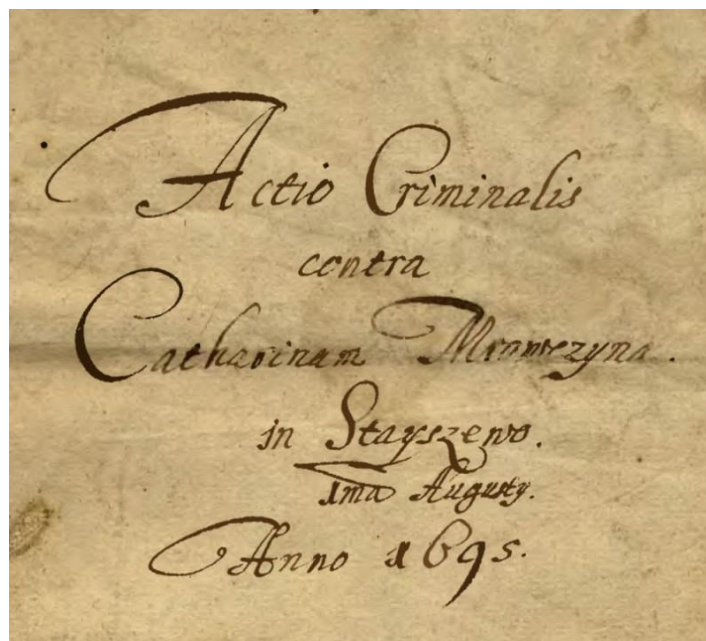 Actio Criminalis
contra
Catharinam Mrowczyna.
in Stayszewo.
1ma Augusty.
Anno 1695.